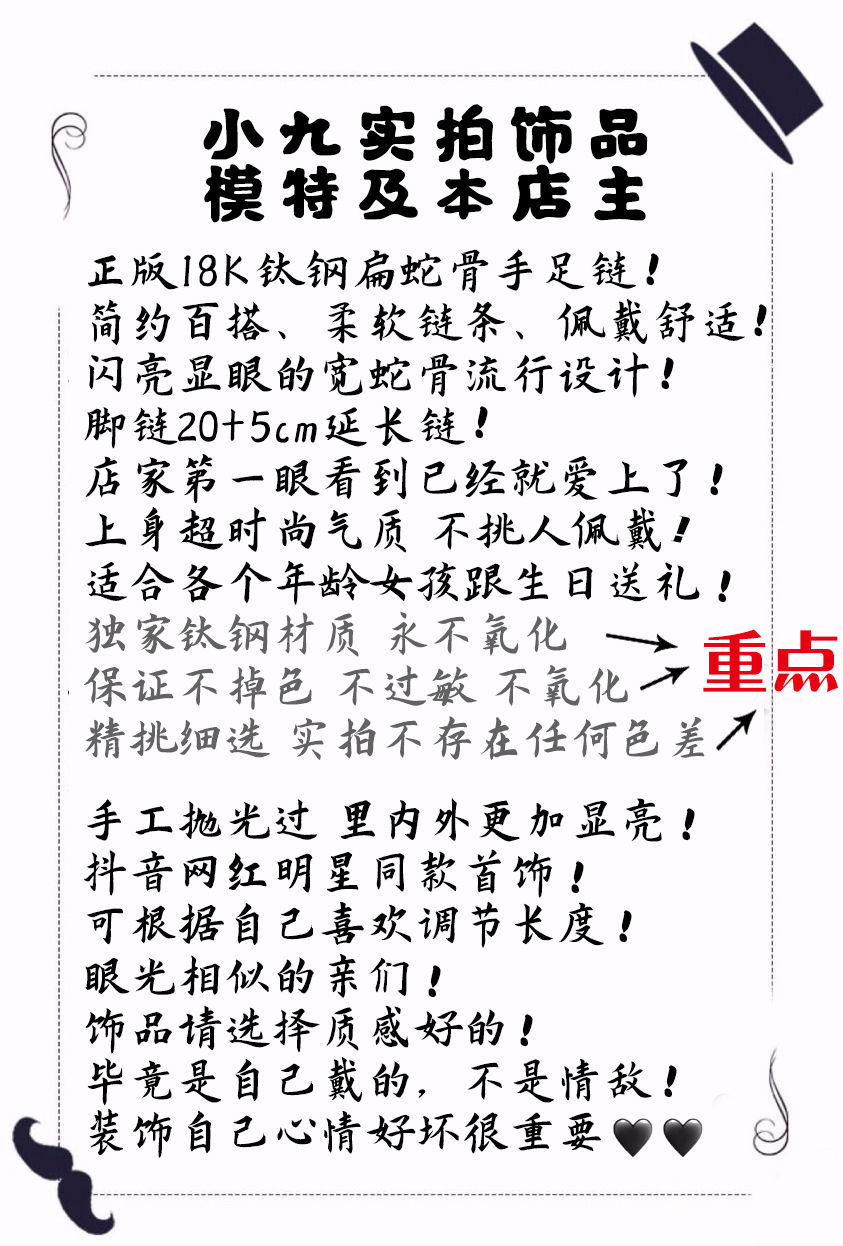 小九实拍饰品
模特及本店主
正版18K钛钢扁蛇骨手足链！
简约百搭、柔软链条、佩戴舒适！
闪亮显眼的宽蛇骨流行设计！
脚链20+5cm延长链！
店家第一眼看到已经就爱上了！
上身超时尚气质 不挑人佩戴！
适合各个年龄女孩跟生日送礼！
独家钛钢材质 永不氧化
保证不掉色 不过敏 不氧化
重点
精挑细选 实拍不存在任何色差
手工抛光过 里内外更加显亮！
抖音网红明星同款首饰！
可根据自己喜欢调节长度！
眼光相似的亲们！
饰品请选择质感好的！
毕竟是自己戴的，不是情敌！
装饰自己心情好坏很重要🖤🖤